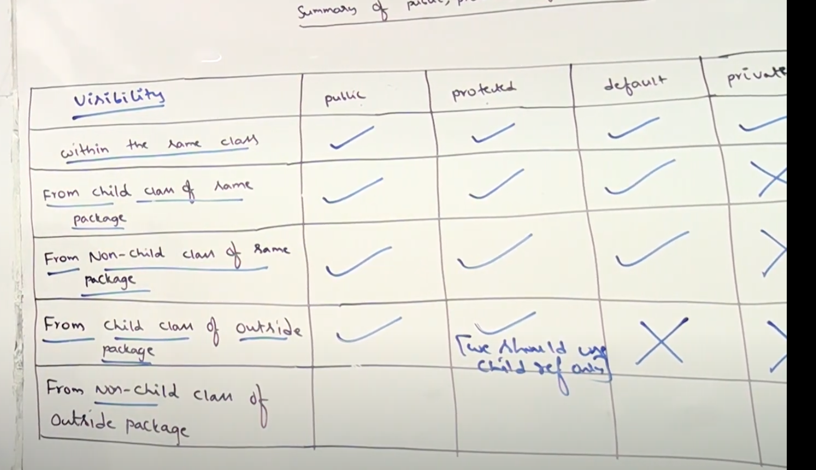 Summary of public,
Visibility public protected default private
within the same class ✓ ✓ ✓ ✓
From child class of same
package ✓ ✓ ✓ ✗
From Non-child class of same
package ✓ ✓ ✓ ✗
From child class of outside
package ✓ ✓ ✗ ✗
[we should use
child ref only]
From non-child class of
outside package